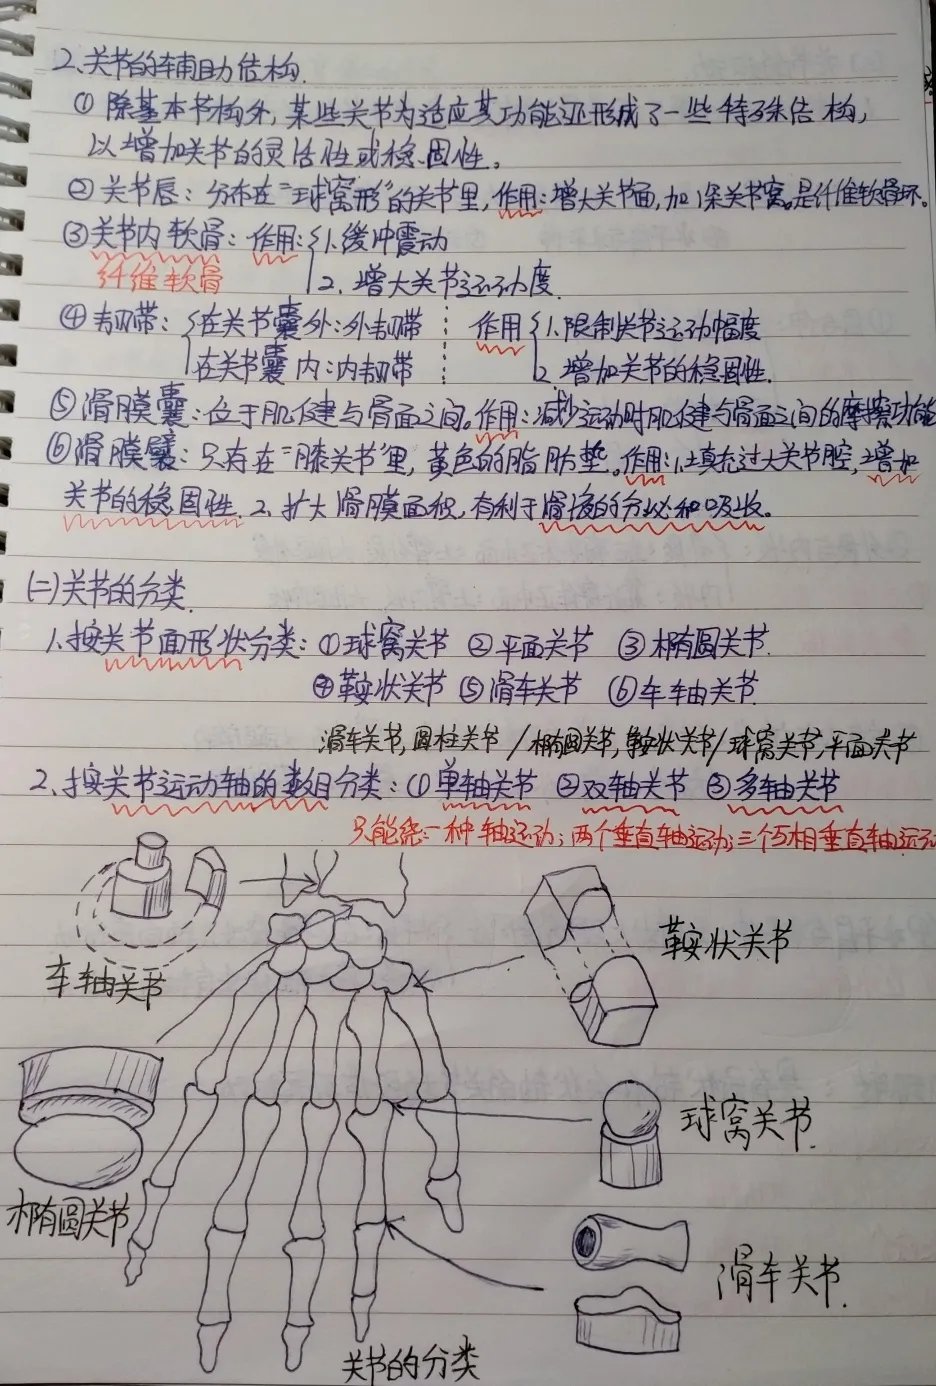 2、关节的辅助结构.
① 除基本节构外,某些关节为适应其功能还形成了一些特殊结构,
以增加关节的灵活性或稳固性。
② 关节唇：分布在“球窝形”的关节里,作用:增大关节面,加深关节窝。是纤维软骨环。
③关节内软骨：作用:1.缓冲震动
纤维软骨
2、增大关节运动度.
④韧带：在关节囊外:外韧带 作用 1.限制关节运动幅度
在关节囊内:内韧带 2、增加关节的稳固性.
⑤滑膜囊:位于肌腱与骨面之间。作用:减少运动时肌腱与骨面之间的摩擦功能
⑥滑膜襞:只存在“膝关节”里,黄色的脂肪垫。作用:1.填充过大关节腔,增加
关节的稳固性. 2、扩大滑膜面积,有利于滑液的分泌和吸收。
(二)关节的分类.
1、按关节面形状分类：①球窝关节 ②平面关节 ③椭圆关节.
④鞍状关节 ⑤滑车关节 ⑥车轴关节.
滑车关节,圆柱关节/椭圆关节,鞍状关节/球窝关节,平面关节
2、按关节运动轴的数目分类：①单轴关节 ②双轴关节 ③多轴关节
只能绕一种轴运动;两个垂直轴运动;三个互相垂直轴运动
车轴关节
鞍状关节
球窝关节.
椭圆关节
滑车关节.
关节的分类